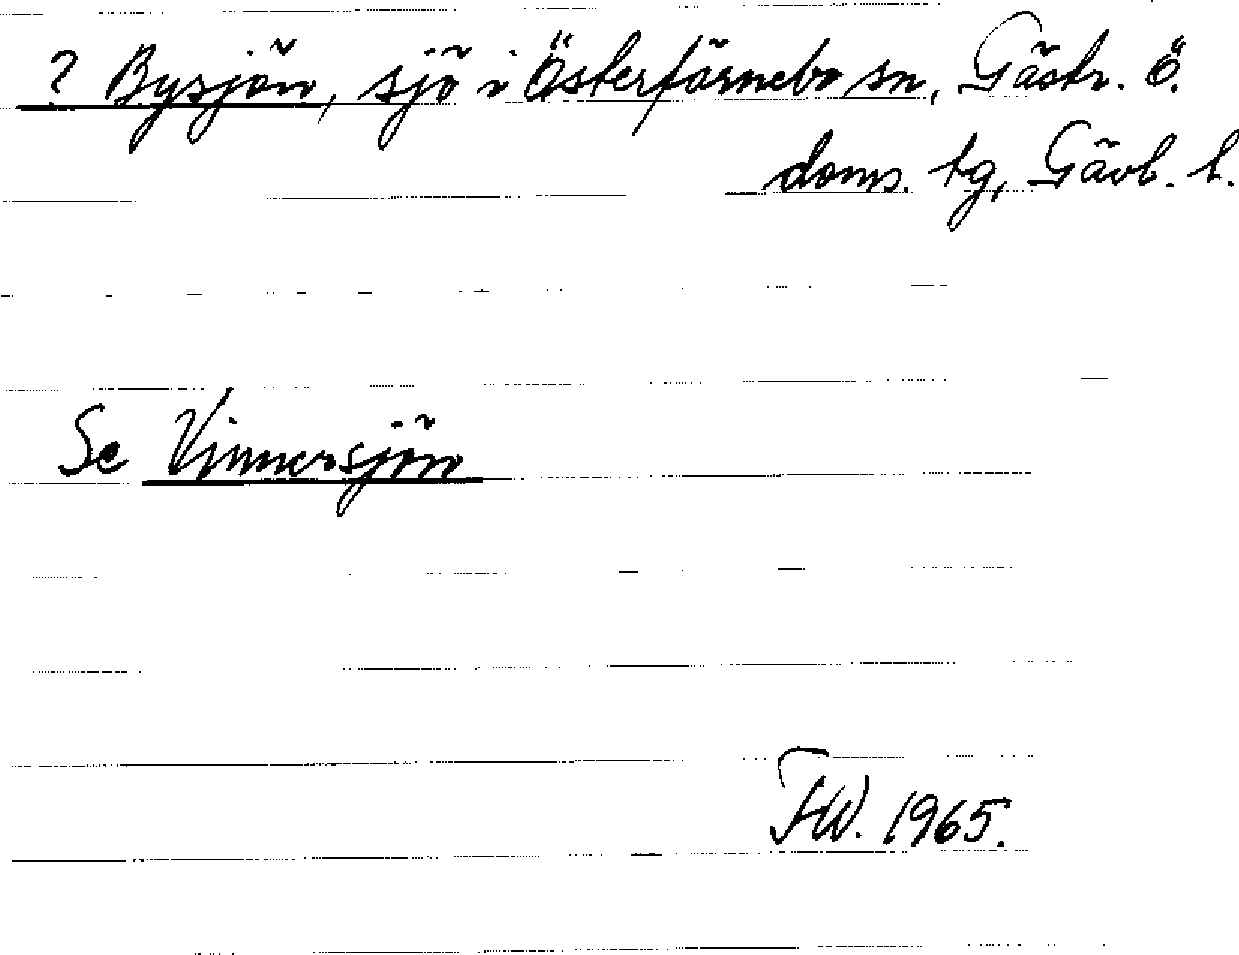 ? Bysjön, sjö i Österfärnebo sn, Gästr. Ö.
doms. tg, Gävl. l.
Se Vinnersjön
FW. 1965.